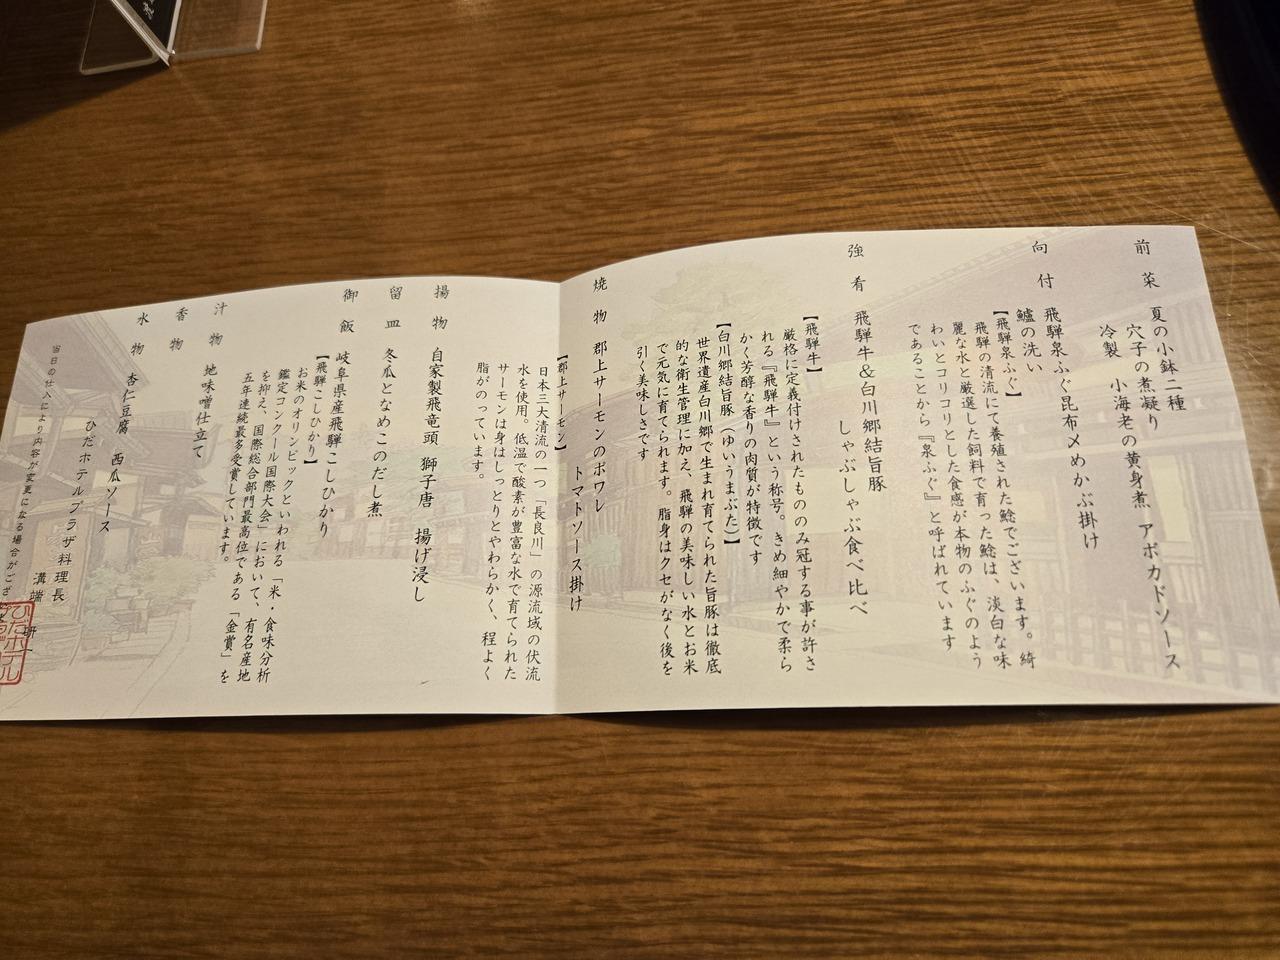 前菜 夏の小鉢二種
穴子の煮凝り
小海老の黄身煮 アボカドソース
冷製 めかぶ掛け
向付 飛騨泉ふぐ昆布〆
鱸の洗い
【飛騨泉ふぐ】
飛騨の清流にて養殖された鯰でございます。綺
麗な水と厳選した飼料で育った鯰は、淡白な味
わいとコリコリとした食感が本物のふぐのよう
であることから『泉ふぐ』と呼ばれています
強肴 飛騨牛&白川郷結旨豚
しゃぶしゃぶ食べ比べ
【飛騨牛】
厳格に定義付けされたもののみ冠する事が許さ
れる『飛騨牛』という称号。きめ細やかで柔ら
かく芳醇な香りの肉質が特徴です
【白川郷結旨豚(ゆいうまぶた)】
世界遺産白川郷で生まれ育てられた旨豚は徹底
的な衛生管理に加え、飛騨の美味しい水とお米
で元気に育てられます。脂身はクセがなく後を
引く美味しさです
焼物 郡上サーモンのポワレ
トマトソース掛け
【郡上サーモン】
日本三大清流の一つ「長良川」の源流域の伏流
水を使用。低温で酸素が豊富な水で育てられた
サーモンは身はしっとりとやわらかく、程よく
脂がのっています。
揚物 自家製飛竜頭 獅子唐 揚げ浸し
留皿 冬瓜となめこのだし煮
御飯 岐阜県産飛騨こしひかり
【飛騨こしひかり】
お米のオリンピックといわれる「米・食味分析
鑑定コンクール国際大会」において、有名産地
を抑え、国際総合部門最高位である「金賞」を
五年連続最多受賞しています。
汁物 地味噌仕立て
香物
水物 杏仁豆腐 西瓜ソース
ひだホテルプラザ料理長
溝端 研一
当日の仕入により内容が変更になる場合がござ
ひだホテル